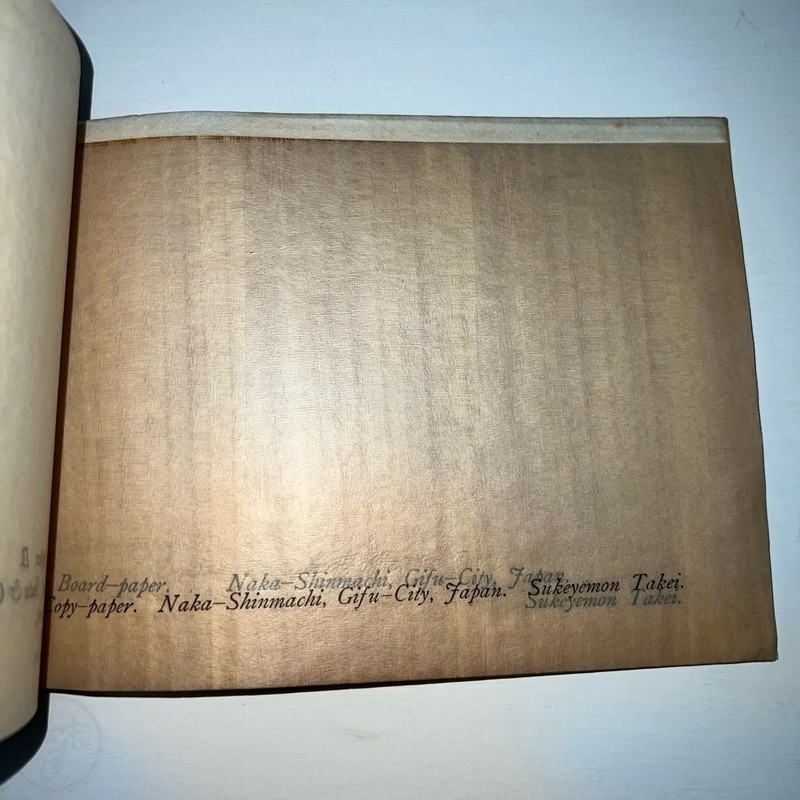 Board-paper. Naka-Shinmachi, Gifu-City, Japan. Sukeyemon Takei.
Copy-paper. Naka-Shinmachi, Gifu-City, Japan. Sukeyemon Takei.